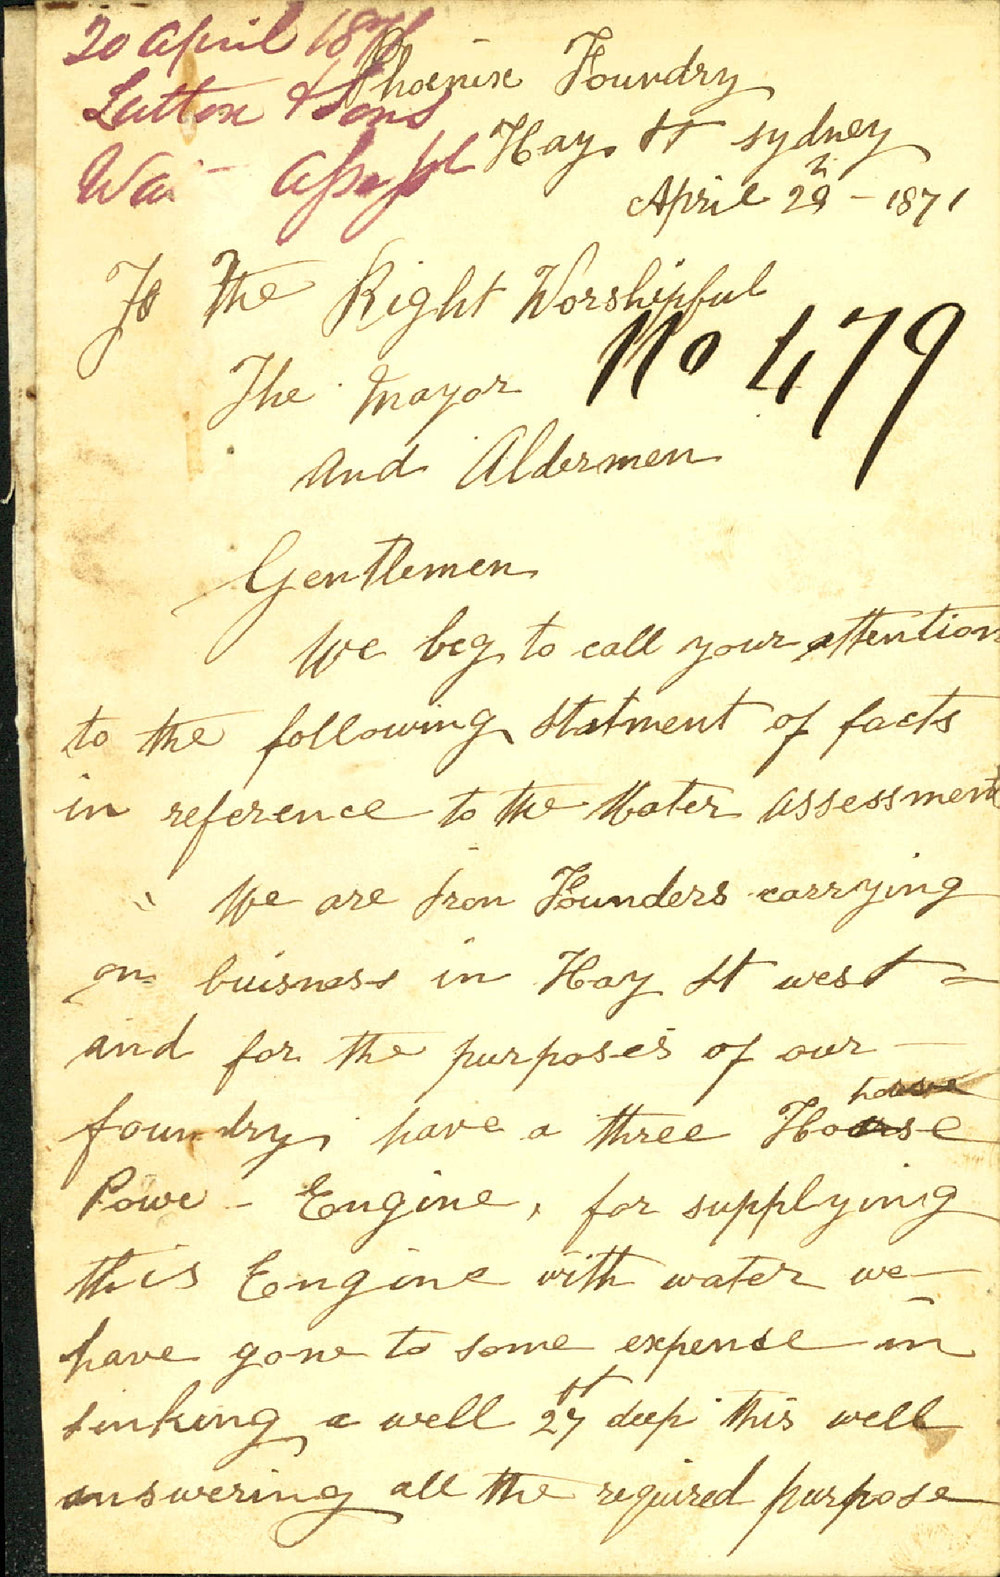 20 April 1871
Sutton & Sons
Wa
Phoenix Foundry
Hay St Sydney
April 2 - 1871
To The Right Worshipful
No 479
The Mayor
and Aldermen
Gentlemen
We beg to call your attention
to the following statment of facts
in reference to the Water assessment
" We are Iron Founders carrying
on buisness in Hay St west =
and for the purposes of our -
horse
foundry, have a three Hoorse
Powe - Engine, for supplying
this Engine with water we -
have gone to some expense in
sinking a well 27 ft deep this well
answering all the required purpose